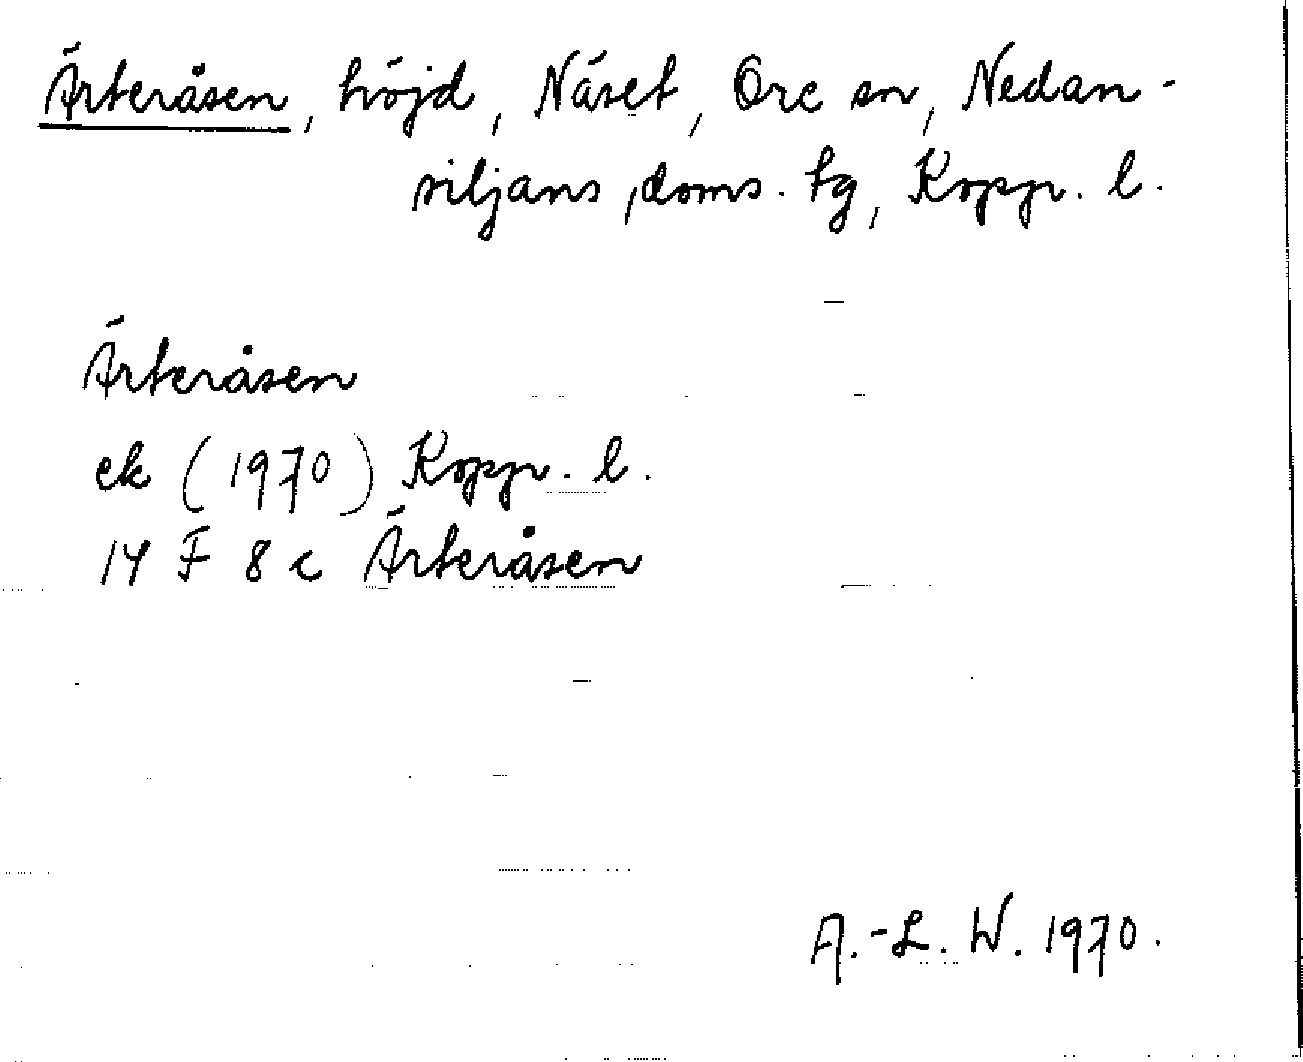 Ärteråsen, höjd, Näset, Ore sn, Nedan-
siljans doms. tg, Kopp. l.
Ärteråsen
ek (1970) Kopp. l.
14 F 8 c Ärteråsen
A.-L. W. 1970.